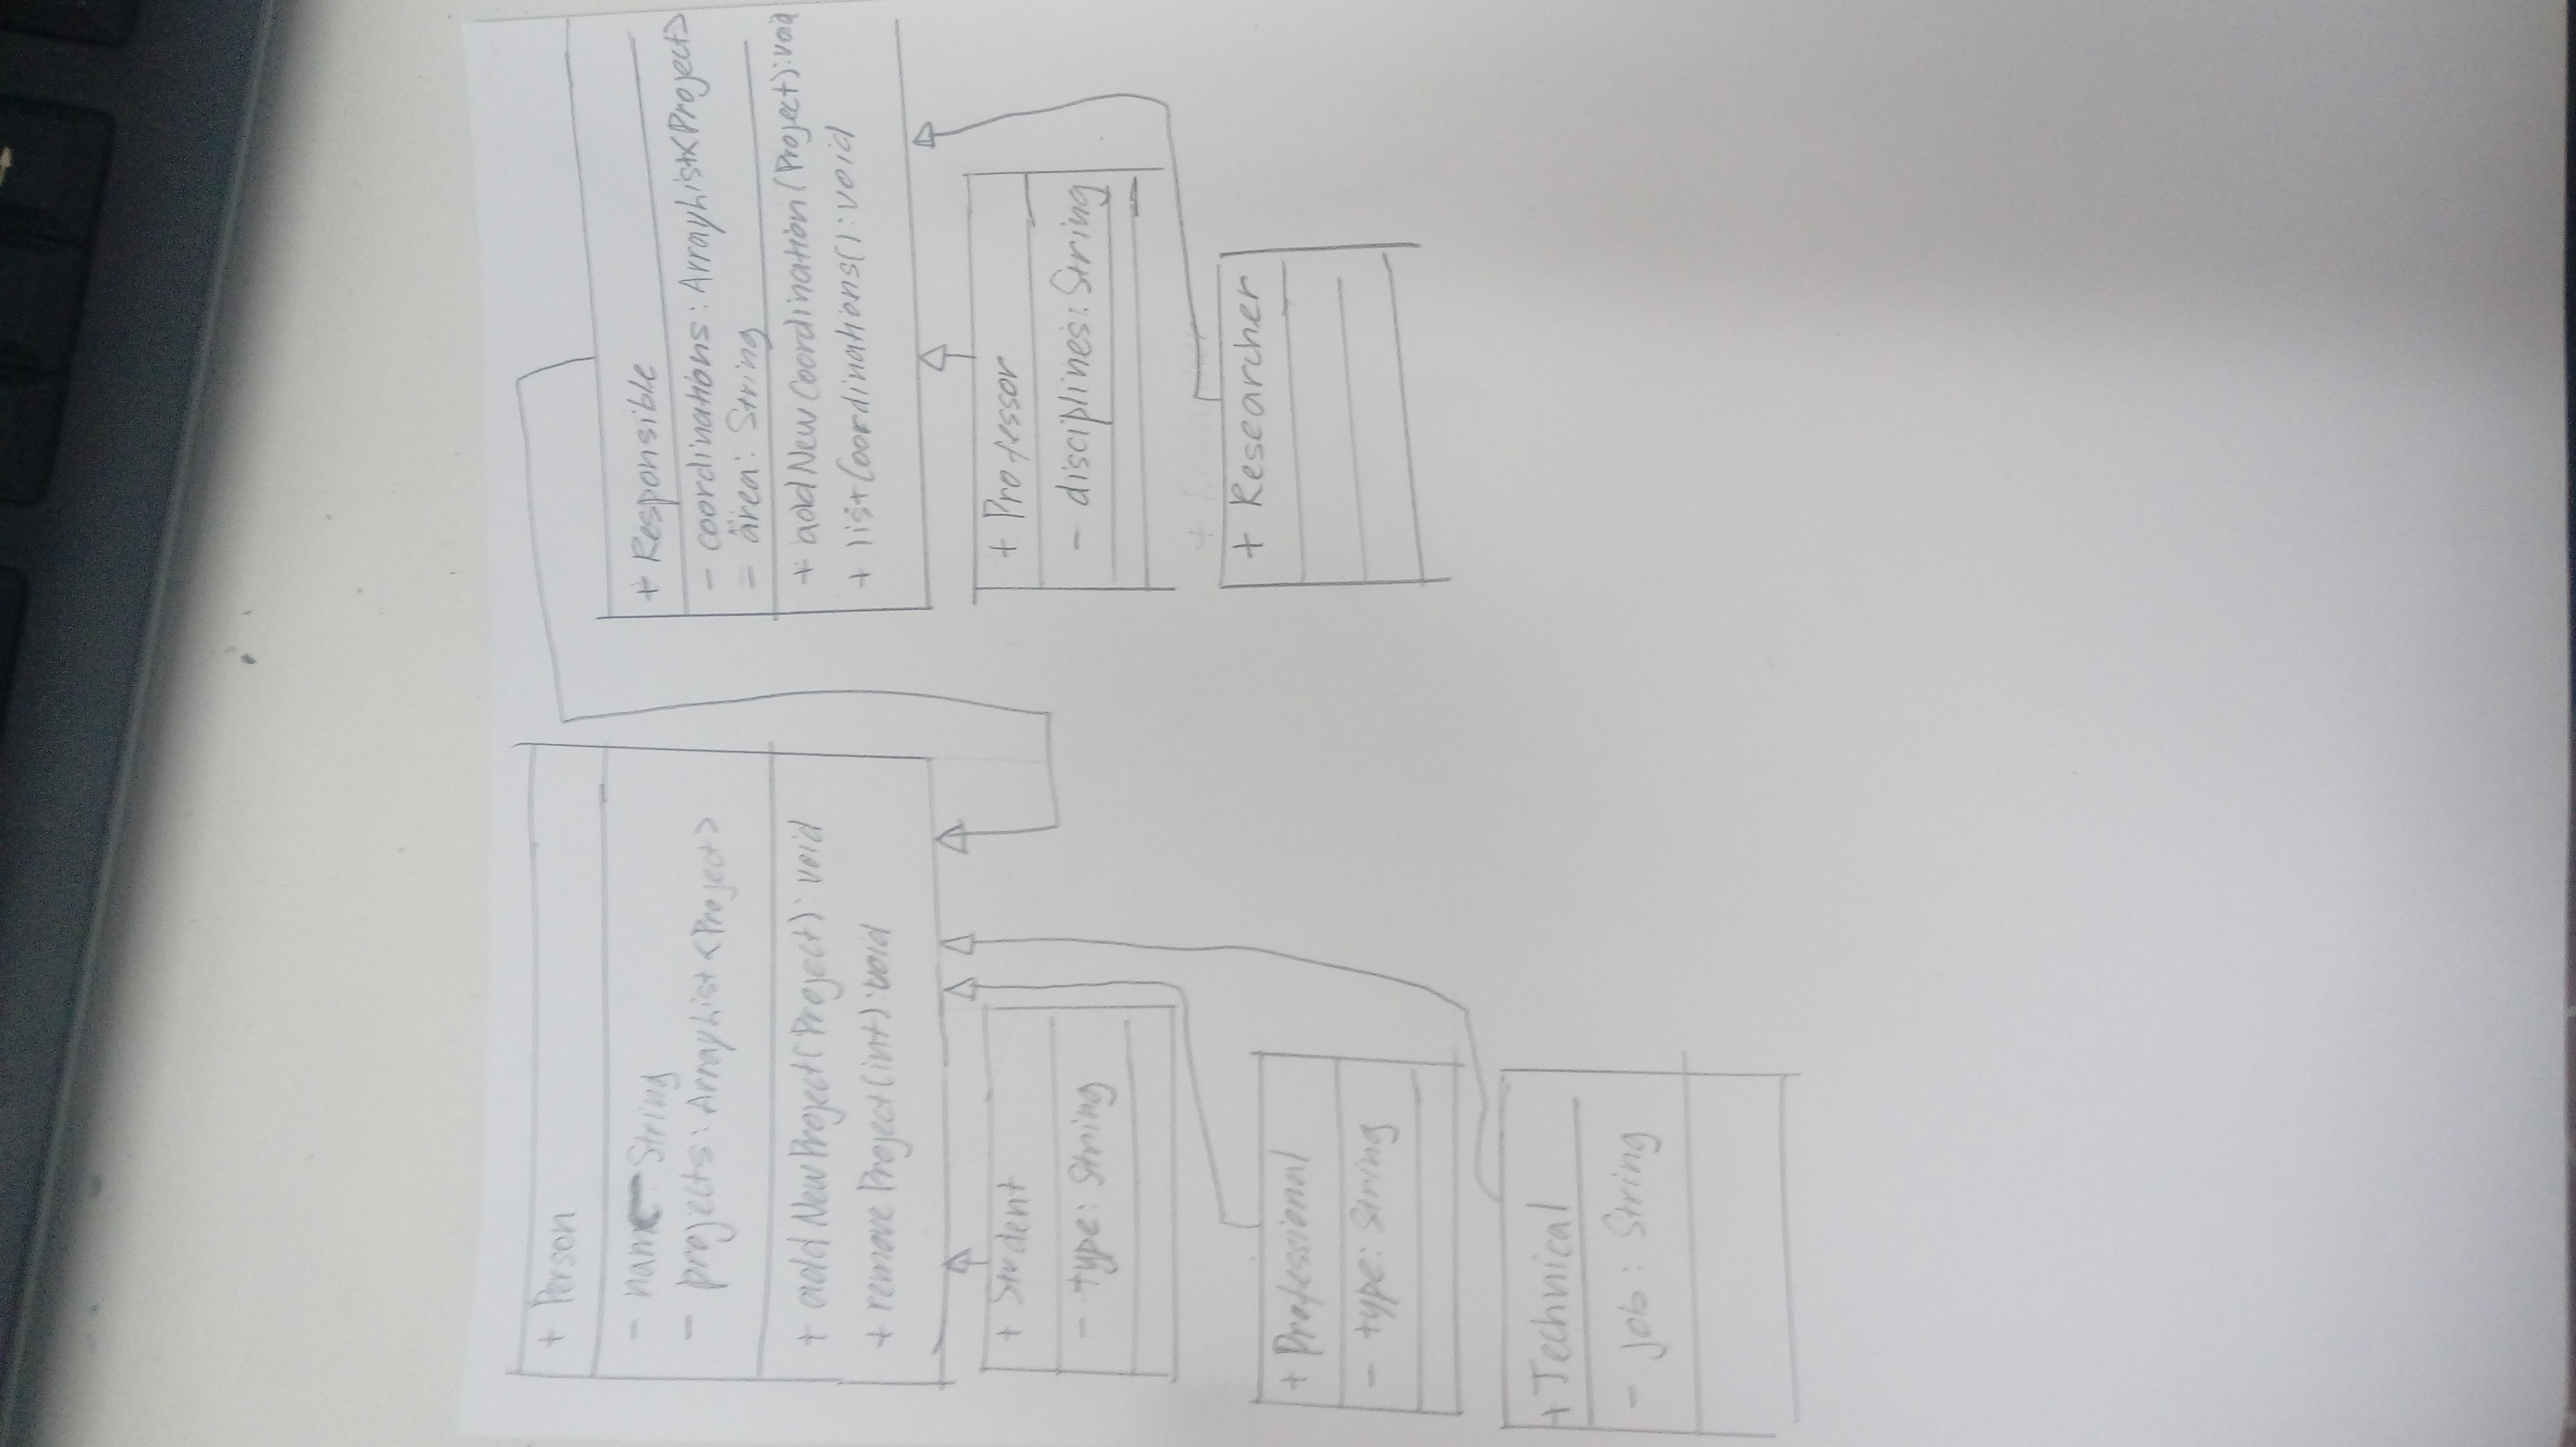 + Person
- name: String
- projects: ArrayList<Project>
+ addNewProject(Project): void
+ removeProject(int): void
+ Student
- type: String
+ Professional
- type: String
+ Technical
- job: String
+ Responsible
- coordinations: ArrayList<Project>
- área: String
+ addNewCoordination(Project): void
+ listCoordinations(): void
+ Professor
- disciplines: String
+ Researcher